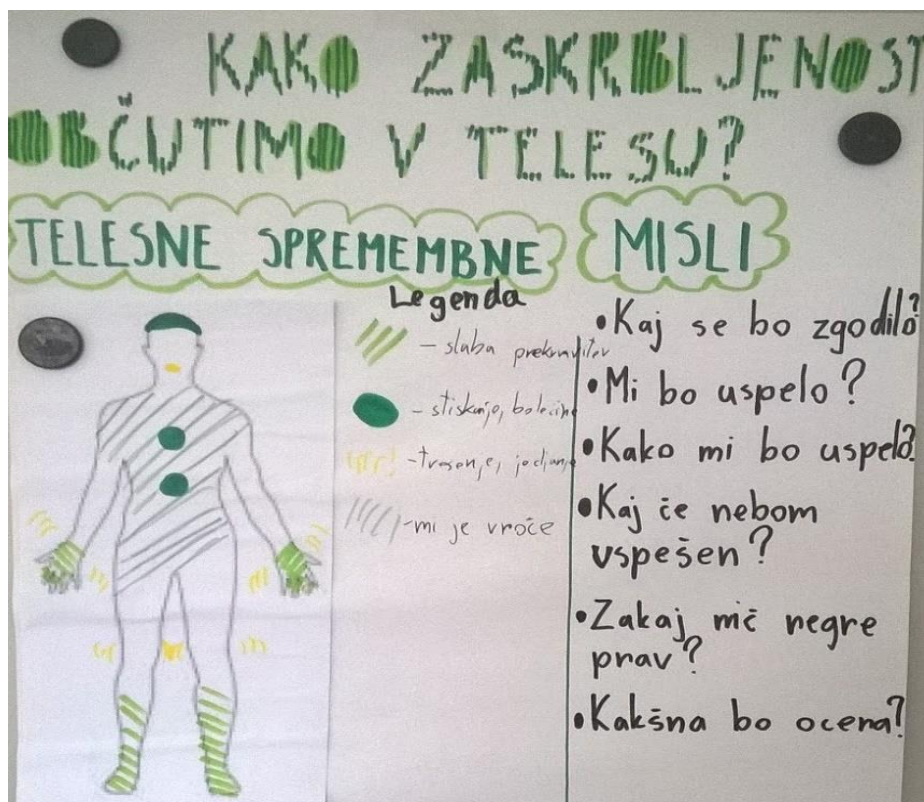 KAKO ZASKRBLJENOST
OBČUTIMO V TELESU?
TELESNE SPREMEMBNE
MISLI
Legenda
- slaba prekrvitev
- stiskanje, bolečine
- tresenje, jokanje
- mi je vroče
• Kaj se bo zgodilo?
• Mi bo uspelo?
• Kako mi bo uspelo?
• Kaj če nebom
uspešen?
• Zakaj nič negre
prav?
• Kakšna bo ocena?